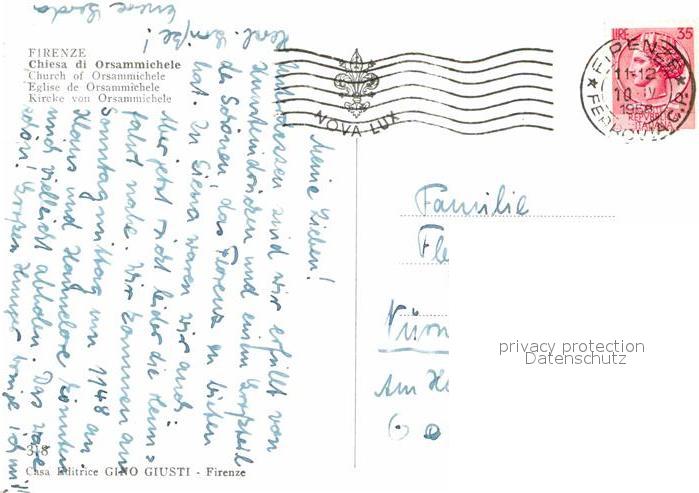 FIRENZE
Chiesa di Orsammichele
Church of Orsammichele
Eglise de Orsammichele
Kirche von Orsammichele
NOVA LUX
LIRE 35
FIRENZE
11-12
10 IV
1958
FERROVIA C.P.
REPUBBLICA
ITALIANA
Meine Lieben!
Unterdessen sind wir erfüllt von
Kunsteindrücken und einem Großteil
des Schönen, das Florenz zu bieten
hat. In Siena waren wir auch.
Nur jetzt rückt leider die Heim=
fahrt nahe. Wir kommen am
Sonntag mittag um 1148 an.
Klaus und Hannelore könnten
uns vielleicht abholen! Das wäre
schön! Großen Hunger bringe ich mit!
Herzl. Grüße!
Eure Gerda
Familie
Fle
Nürn
Am Ha
60
318
Casa Editrice GINO GIUSTI - Firenze
privacy protection
Datenschutz